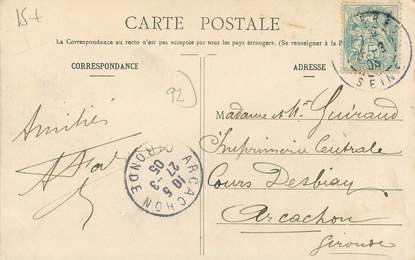 15+
CARTE POSTALE
La Correspondance au recto n'est pas acceptée par tous les pays étrangers. (Se renseigner à la P
CORRESPONDANCE
ADRESSE
92
SEINE
Amitiés
Madame et Mr Guiraud
Imprimerie Centrale
Cours Desbiay
Arcachon
Gironde
ARCACHON
10 5
27 -3
05
GIRONDE